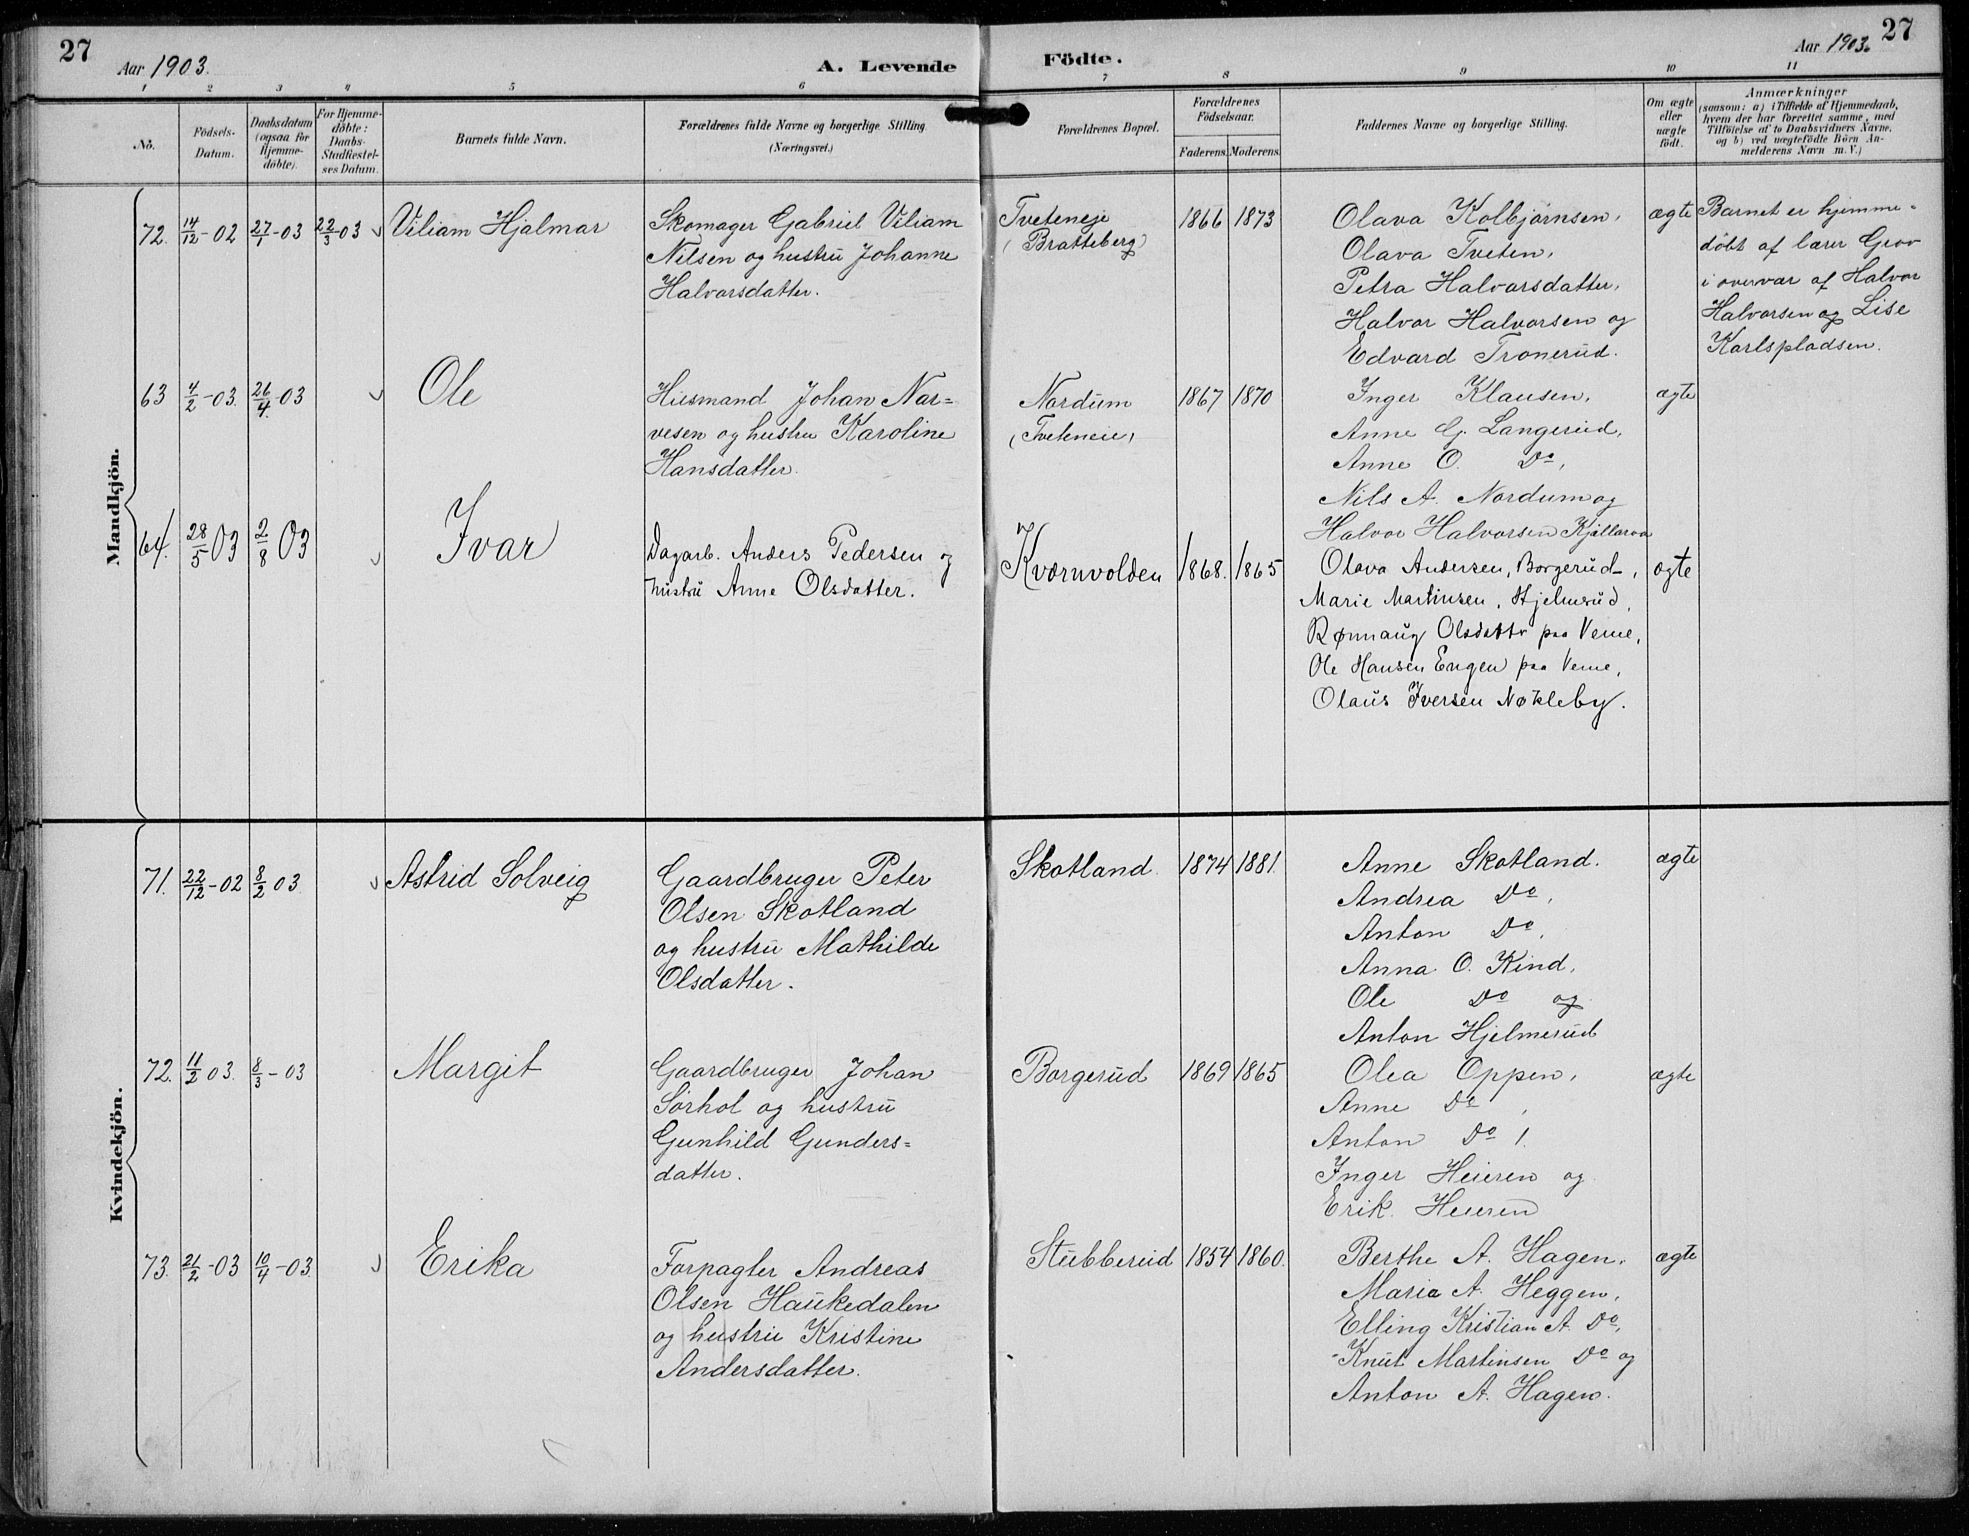 27
Aar 1903.
A. Levende
Födte.
Aar 1903.
27
1 2 3 4 5 6 7 8 9 10 11
No.
Födsels-
Datum.
Daabsdatum
(ogsaa for
Hjemme-
döbte).
For Hjemme-
döbte:
Daabs-
Stadfæstel-
ses Datum.
Barnets fulde Navn.
Forældrenes fulde Navne og borgerlige Stilling
(Næringsvei.)
Forældrenes Bopæl.
Forældrenes
Födselsaar.
Faderens.
Moderens.
Faddernes Navne og borgerlige Stilling.
Om ægte
eller
uægte
födt.
Anmærkninger
(saasom: a) i Tilfælde af Hjemmedaab,
hvem der har forrettet samme, med
Tilföielse af to Daabsvidners Navne,
og b) ved uægtefödte Börn An-
melderens Navn m. V.)
Mandkjön.
72. 14/12-02 27/1-03 22/3-03 Viliam Hjalmar
Skomager Gabriel Viliam
Nilsen og hustru Johanne
Halvorsdatter.
Tveteneje
(Bratteberg)
1866 1873
Olava Kolbjørnsen,
Olava Tveten,
Petra Halvorsdatter,
Halvor Halvorsen og
Edvard Tronerud.
ægte
Barnet er hjemme-
döbt af lærer Grov
i overvær af Halvor
Halvorsen og Lise
Karlspladsen.
63 4/2-03. 26/4-03 Ole
Husmand Johan Nar=
vesen og hustru Karoline
Hansdatter.
Nordum
(Tveteneie)
1867 1870
Inger Klausen,
Anne G. Langerud,
Anne O. Do,
Nils A. Nordum og
Halvor Halvorsen
ægte
64. 28/5 03 2/8 03 Ivar
Dagarb. Anders Pedersen og
hustru Anne Olsdatter.
Kværnvolden
1868. 1865
Olava Andersen, Borgerud,
Marie Martinsen, Hjelmerud,
Rønnaug Olsdattr paa Verne,
Ole Hansen Engen paa Verne,
Olaus Iversen Nøkleby.
ægte
Kvindekjön.
71. 22/12-02 8/2 03. Astrid Solveig
Gaardbruger Peter
Olsen Skotland
og hustru Mathilde
Olsdatter.
Skotland.
1874 1881.
Anne Skotland.
Andrea Do,
Anton Do,
Anna O. Kind,
Ole Do og
Anton Hjelmerud
ægte
72. 11/2 03. 8/3-03 Margit
Gaardbruger Johan
Sörhol og hustru
Gunhild Gunders=
datter.
Borgerud
1869 1865
Olea Oppen,
Anne Do,
Anton Do,
Inger Heieren og
Erik Heieren
ægte
73. 21/2-03 10/4-03. Erika
Forpagter Andreas
Olsen Haukedalen
og hustru Kristine
Andersdatter.
Stubberud
1854 1860.
Berthe A. Hagen,
Maria A. Heggen,
Elling Kristian A. Do,
Knut Martinsen Do og
Anton A. Hagen.
ægte